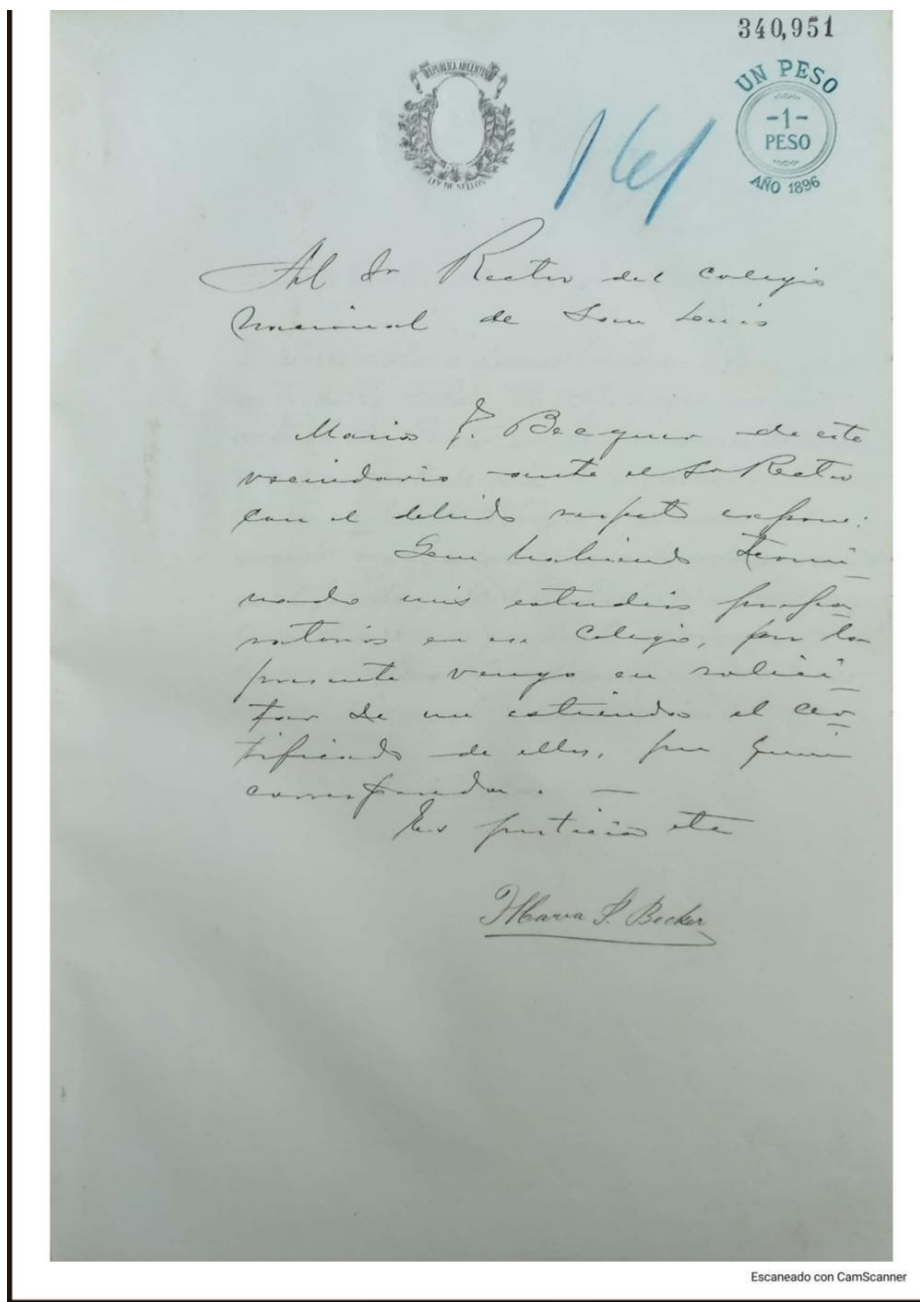 340,951
REPUBLICA ARGENTINA
LEY DE SELLOS
UN PESO
-1-
PESO
AÑO 1896
161
Al Sr Rector del colegio
Nacional de San Luis
Mario F. Becquer de este
vecindario ante el Sr Rector
con el debido respeto expone:
Que habiendo termi-
nado mis estudios prepa-
ratorios en ese Colegio, por la
presente vengo en solici-
tar se me extienda el cer-
tificado de ellos, por quien
corresponda. —
Es justicia etc
Maria F. Becker
Escaneado con CamScanner